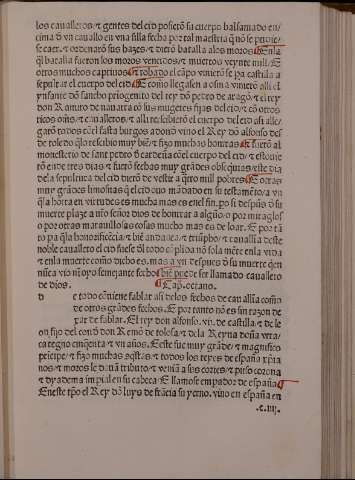 los caualleros/⁊ gentes del cid posierõ su cuerpo balsamado en/
cima ð vn cauallo en vna silla fecha por tal maestria q̃ nõ se perdie/
se caer.⁊ ordenarõ sus hazes/⁊ dierõ batalla alos moros En la
q̃l batalla fueron los moros vencidos/⁊ muertos veynte mill/⁊
otros muchos captiuos/⁊ robado el cãpo vinierõ se pa castilla a
sepultar el cuerpo del cid como llegasen a osma vinierõ alli el
ynfante dõn sancho priogenito del rey dõn pedro de aragõ/⁊ el rey
don Ramiro de nauarra cõ sus mugeres fijas del cid/⁊ cõ otros
ricos oms/⁊ caualleros/⁊ alli rescibierõ el cuerpo del cid asi alle/
garõ todos cõel fasta burgos adonð vino el Rey dõn alfonso des
de toledo q̃lo rescibio muy biẽ/⁊ fizo muchas honrras/⁊ fuerõ al
monesterio de sant pedro ð cardeña cõel cuerpo del cid/⁊ estouie
rõ ende tres dias/⁊ fuerõ fechas muy grãdes obsequias/este dia
dela sepultura del cid dierõ de vestir a q̃tro mill pobres otras
muy grãdes limosnas q̃el cid ouo mãdado en su testamẽto/a vn
q̃la honrra en virtudes es mucha mas es enel fin.po si despues ð su
muerte plaze a nřo señor dios de honrrar a alguno/o por miraglos
o por otras marauillosas cosas mucho mas es de loar. E por tã
to pa q̃la honorificẽcia/⁊ biẽ andança/⁊ triũpho/⁊ cauallia deste
noble cauallero el cid fuese ð todo cõplida nõ sola mẽte enla vida/
⁊ enla muerte como dicho es. mas a vn despues ð su muerte q̃en
nũca vio nin oyo semejante fecho biẽ pue de ser llamado cauallero
de dios. Cap. octauo.
d e todo cõuiene fablar asi delos fechos de cauallia como
de otros grãdes fechos. E por tanto nõ es sin razon de
xar de fablar. El rey don alfonso .vii. de castilla/⁊ de le
on fijo del conde don Remõ de tolosa/⁊ dela Reyna doña vrra/
ca regno cinquenta/⁊ vn años. Este fue muy grãde/⁊ magnifico
prĩcipe/⁊ fizo muchas cõq̃stas/⁊ todos los reyes de españa xp̃ia
nos/⁊ moros le dauã tributo/⁊ veniã a sus cortes/⁊ puso corona
⁊ dyadema imperial en su cabeça E llamose empador de españa
E neste tpo el Rey dõ luys de frãcia su yerno. vino en españa en
.c.iij.